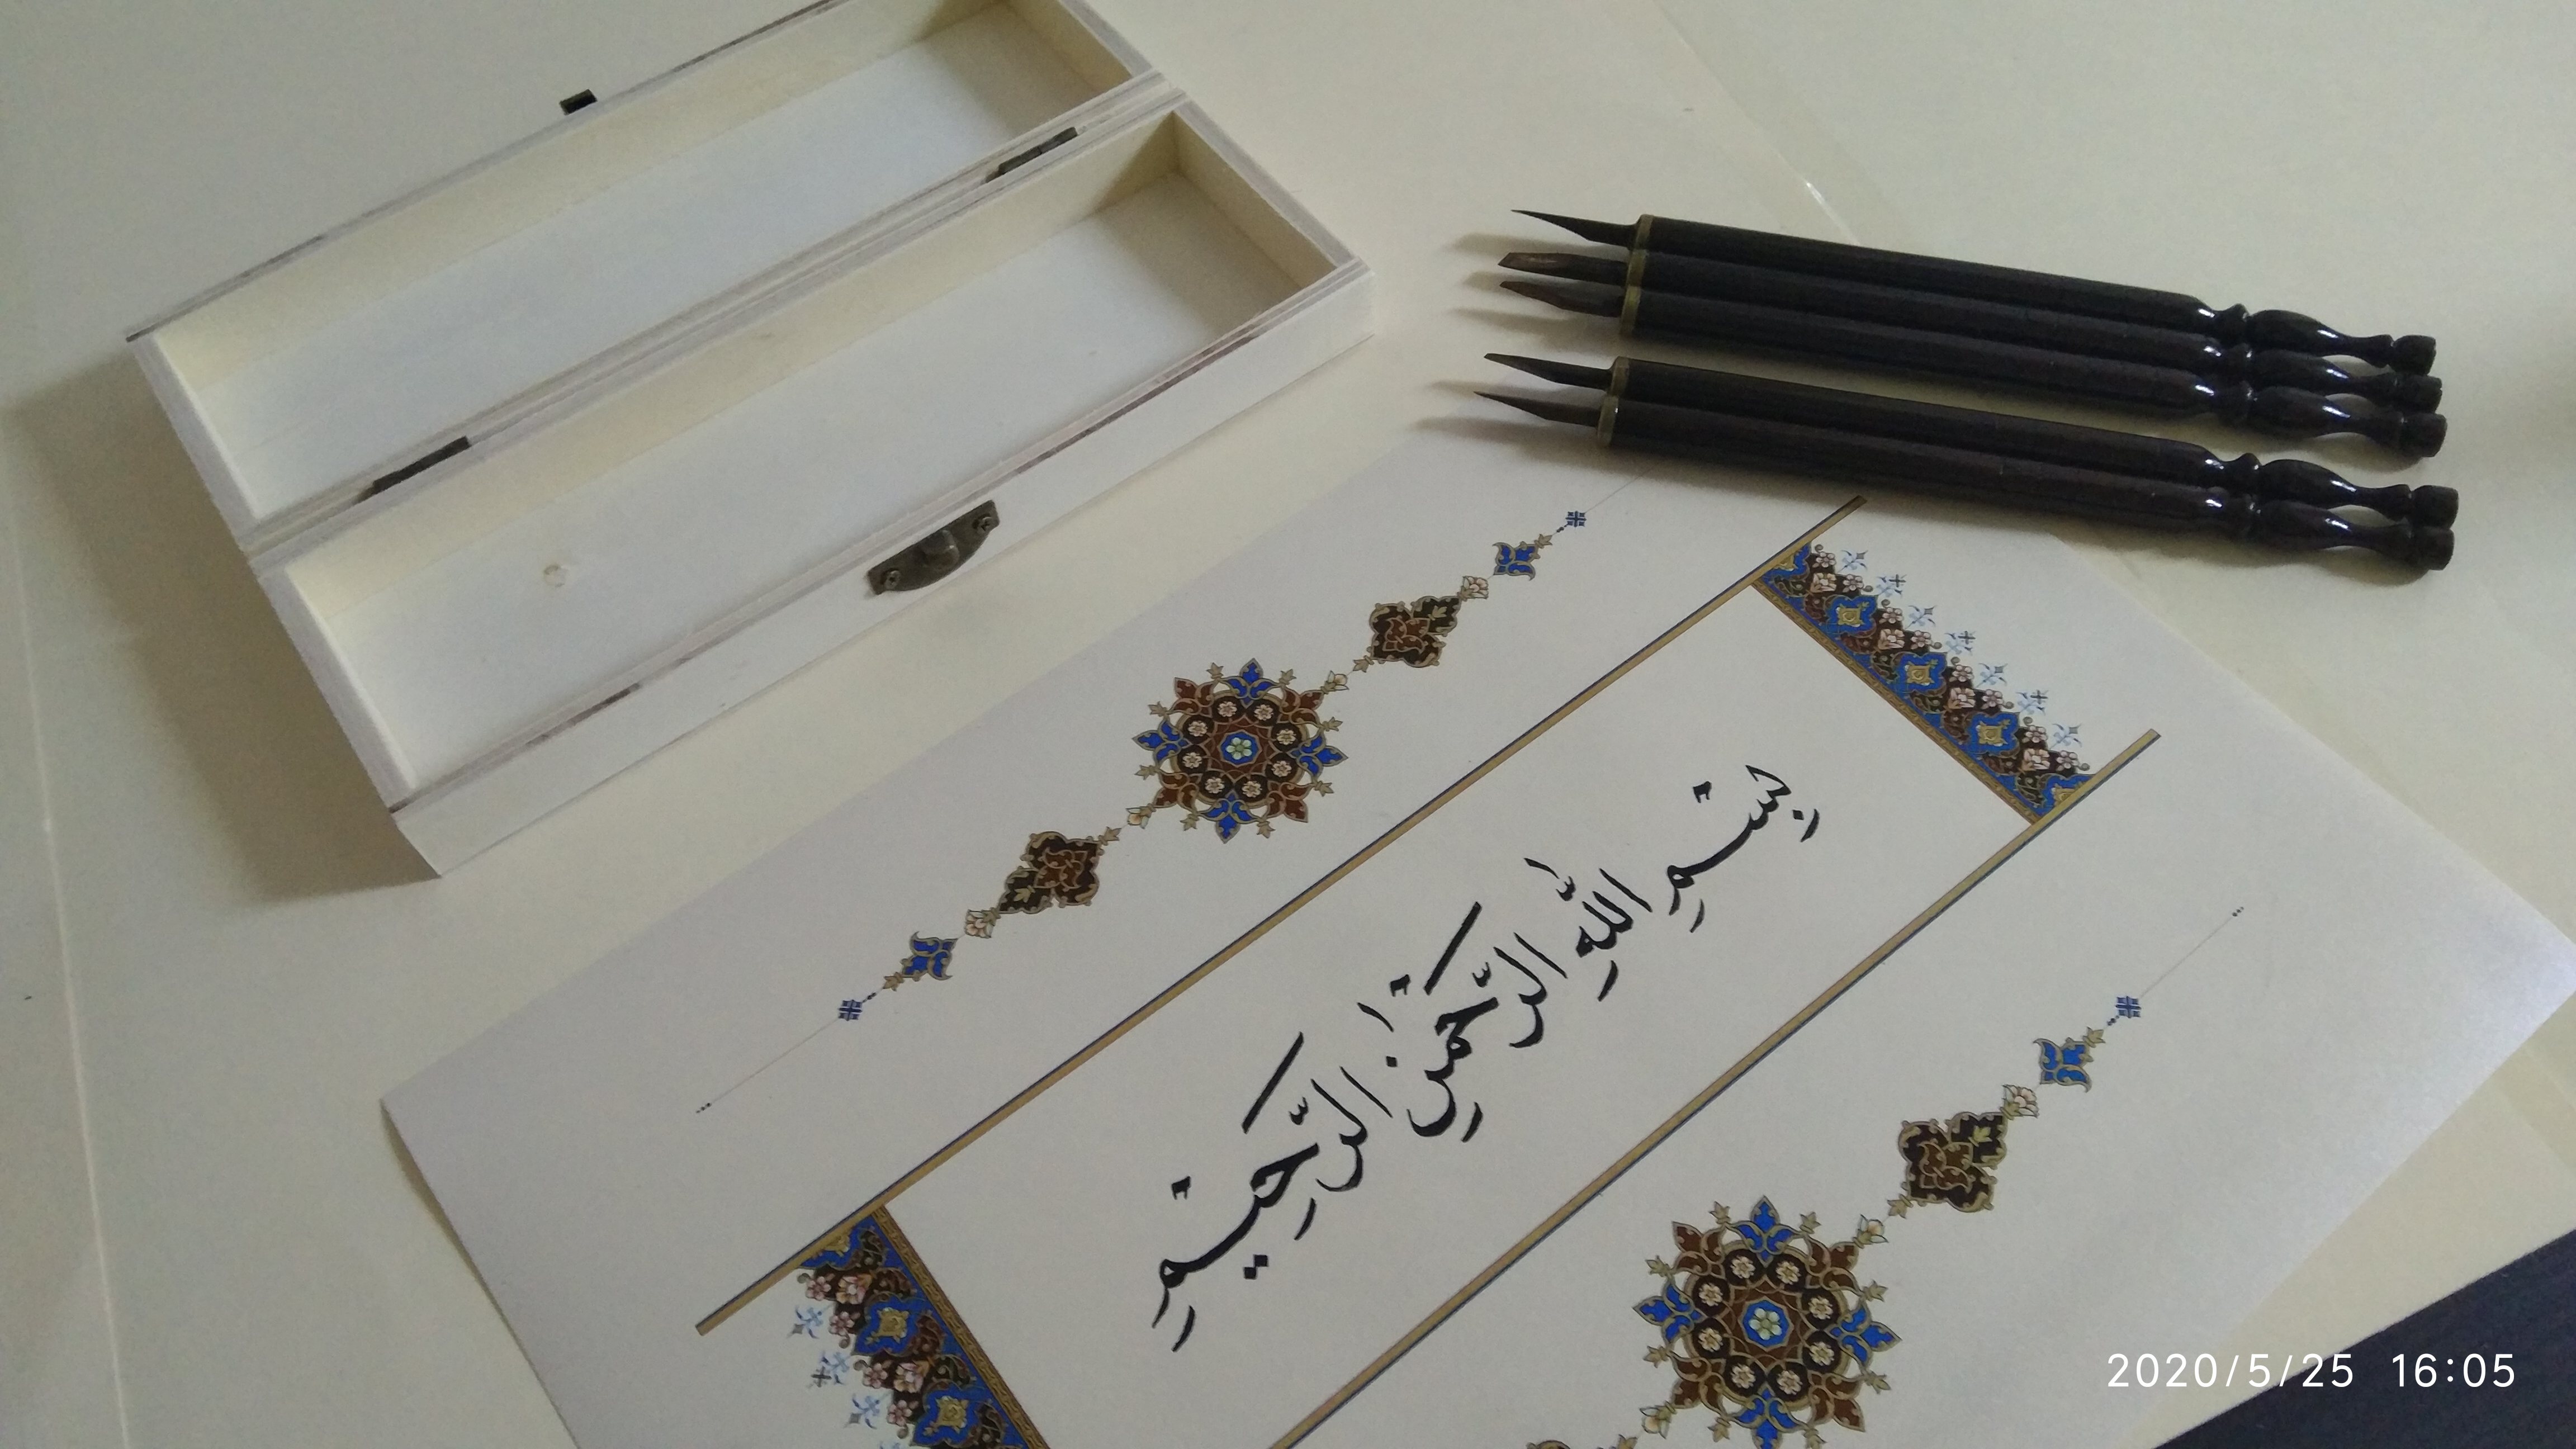 بِسْمِ اللَّهِ الرَّحْمٰنِ الرَّحيْمِ
2020/5/25 16:05